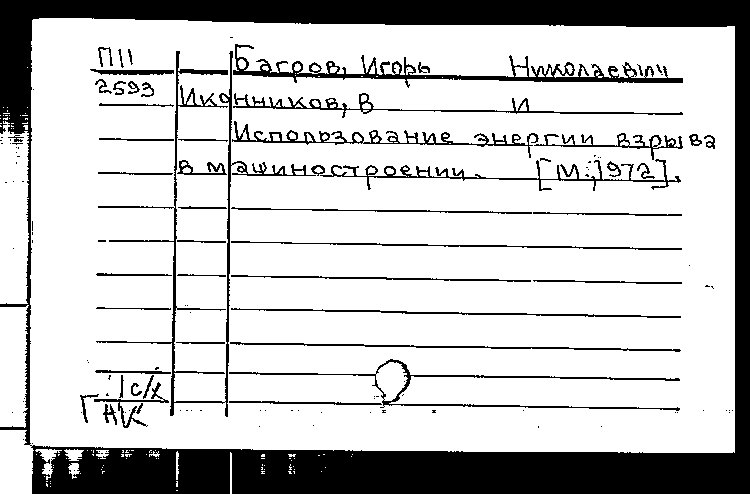 ПII Багров, Игорь Николаевич
2593 Иконников, В И
Использование энергии взрыва
в машиностроении. [М.,1972].
1 с/х
ГАК